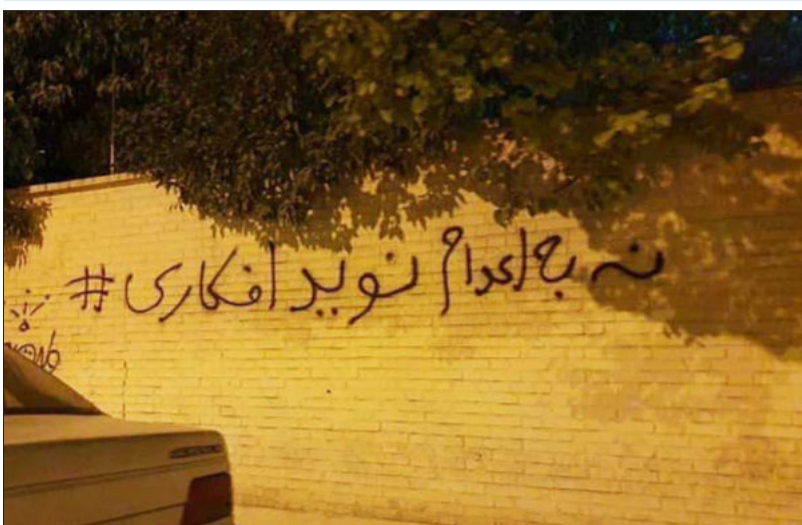 نه به اعدام نوید افکاری #